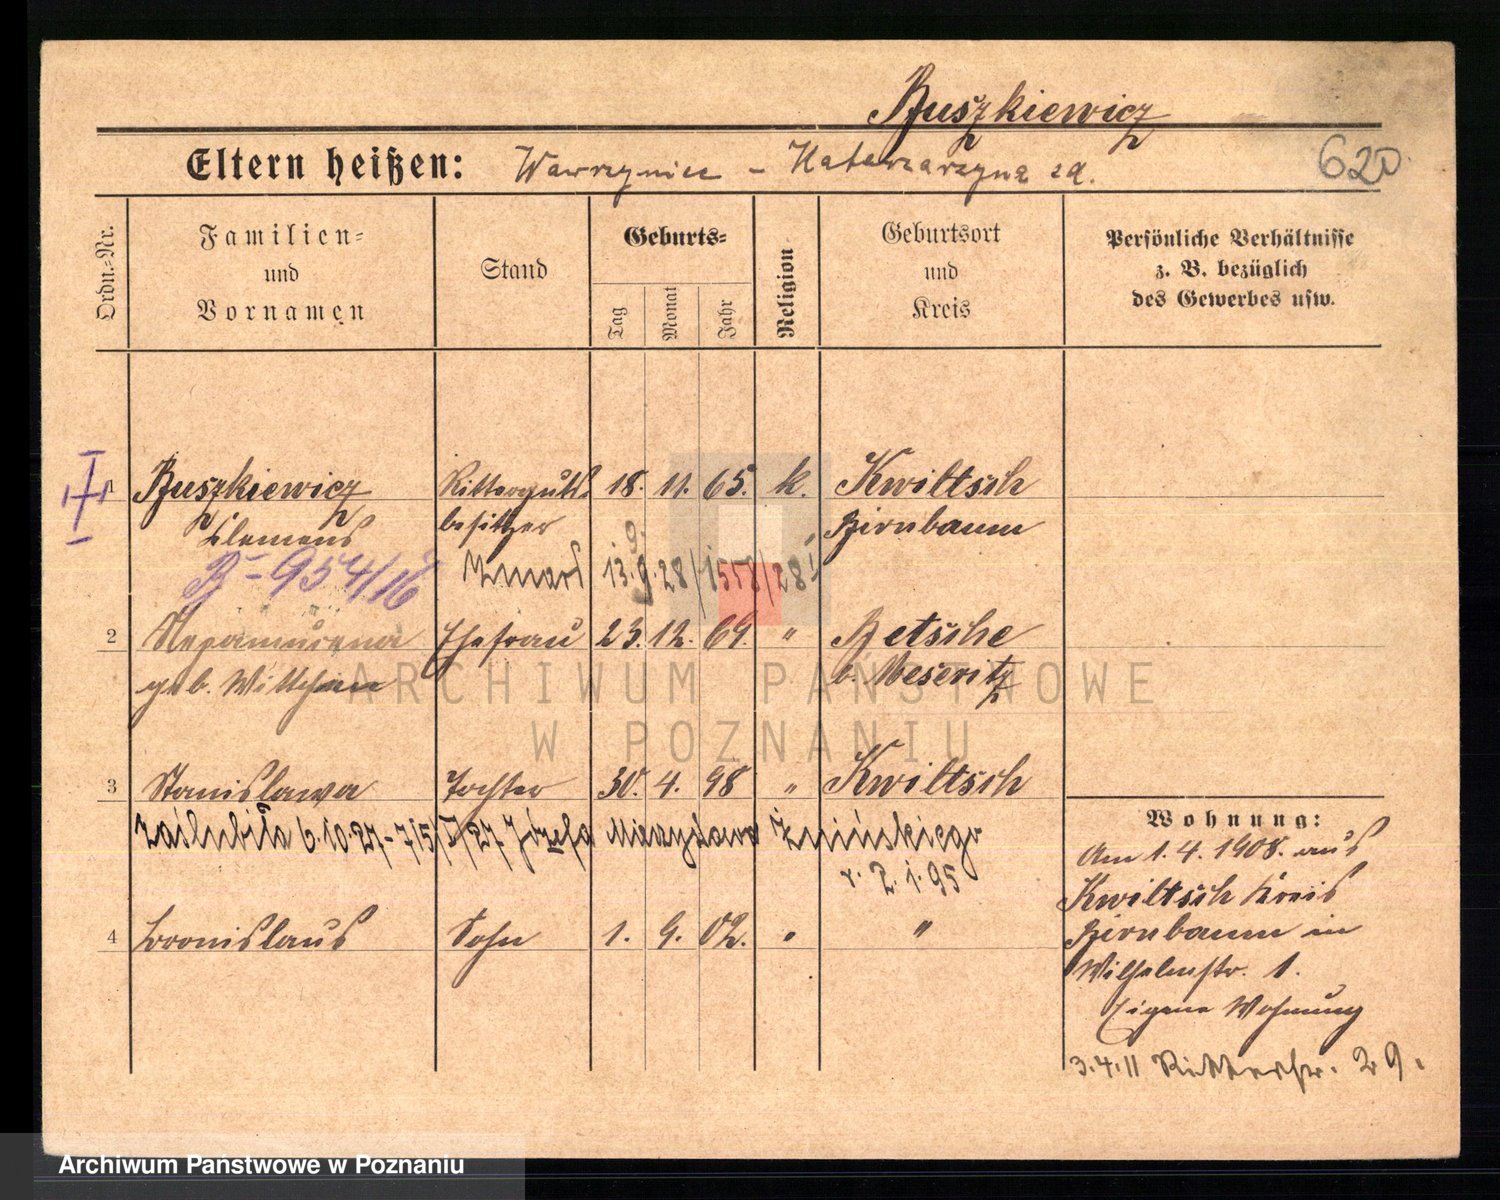 Buszkiewicz
Eltern heißen: Wawrzyniec - Katarzarzyna zd.
620
Ordn.-Nr.
Familien-
und
Vornamen
Stand
Geburts-
Tag
Monat
Jahr
Religion
Geburtsort
und
Kreis
Persönliche Verhältnisse
z. B. bezüglich
des Gewerbes usw.
1 Buszkiewicz Ritterguts- 18. 11. 65. k. Kwiltsch
Clemens besitzer Birnbaum
B-954/16 zmarł 13.9.28/1558/28
2 Nepomucena Ehefrau 23. 12. 69. " Betsche
geb. b. Meseritz
3 Stanislawa Tochter 30. 4. 98 " Kwiltsch
zaślubiła 6.10.27 Józefa Mieczysława Żnińskiego
r. 2.1.95
4 Bronislaus Sohn 1. 9. 02. " "
Wohnung:
Am 1.4.1908. aus
Kwiltsch Kreis
Birnbaum in
Wilhelmstr. 1.
Eigene Wohnung
3.4.11 Ritterstr. 29.
ARCHIWUM PAŃSTWOWE
W POZNANIU
Archiwum Państwowe w Poznaniu